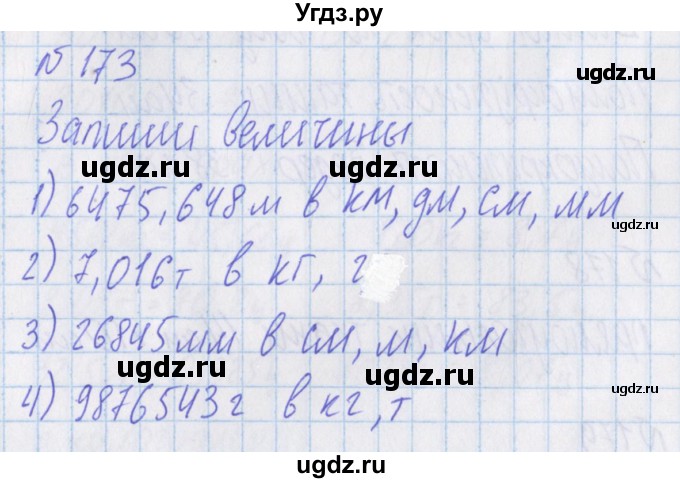 Угдз.ру
№ 173
ugdz.ru
Запиши величины
ugdz.ru ugdz.ru
1) 6475,648 м в км, дм, см, мм
ugdz.ru
2) 7,016 т в кг, г
ugdz.ru
3) 26845 мм в см, м, км
ugdz.ru ugdz.ru
ugdz.ru
4) 9876543 г в кг, т
ugdz.ru